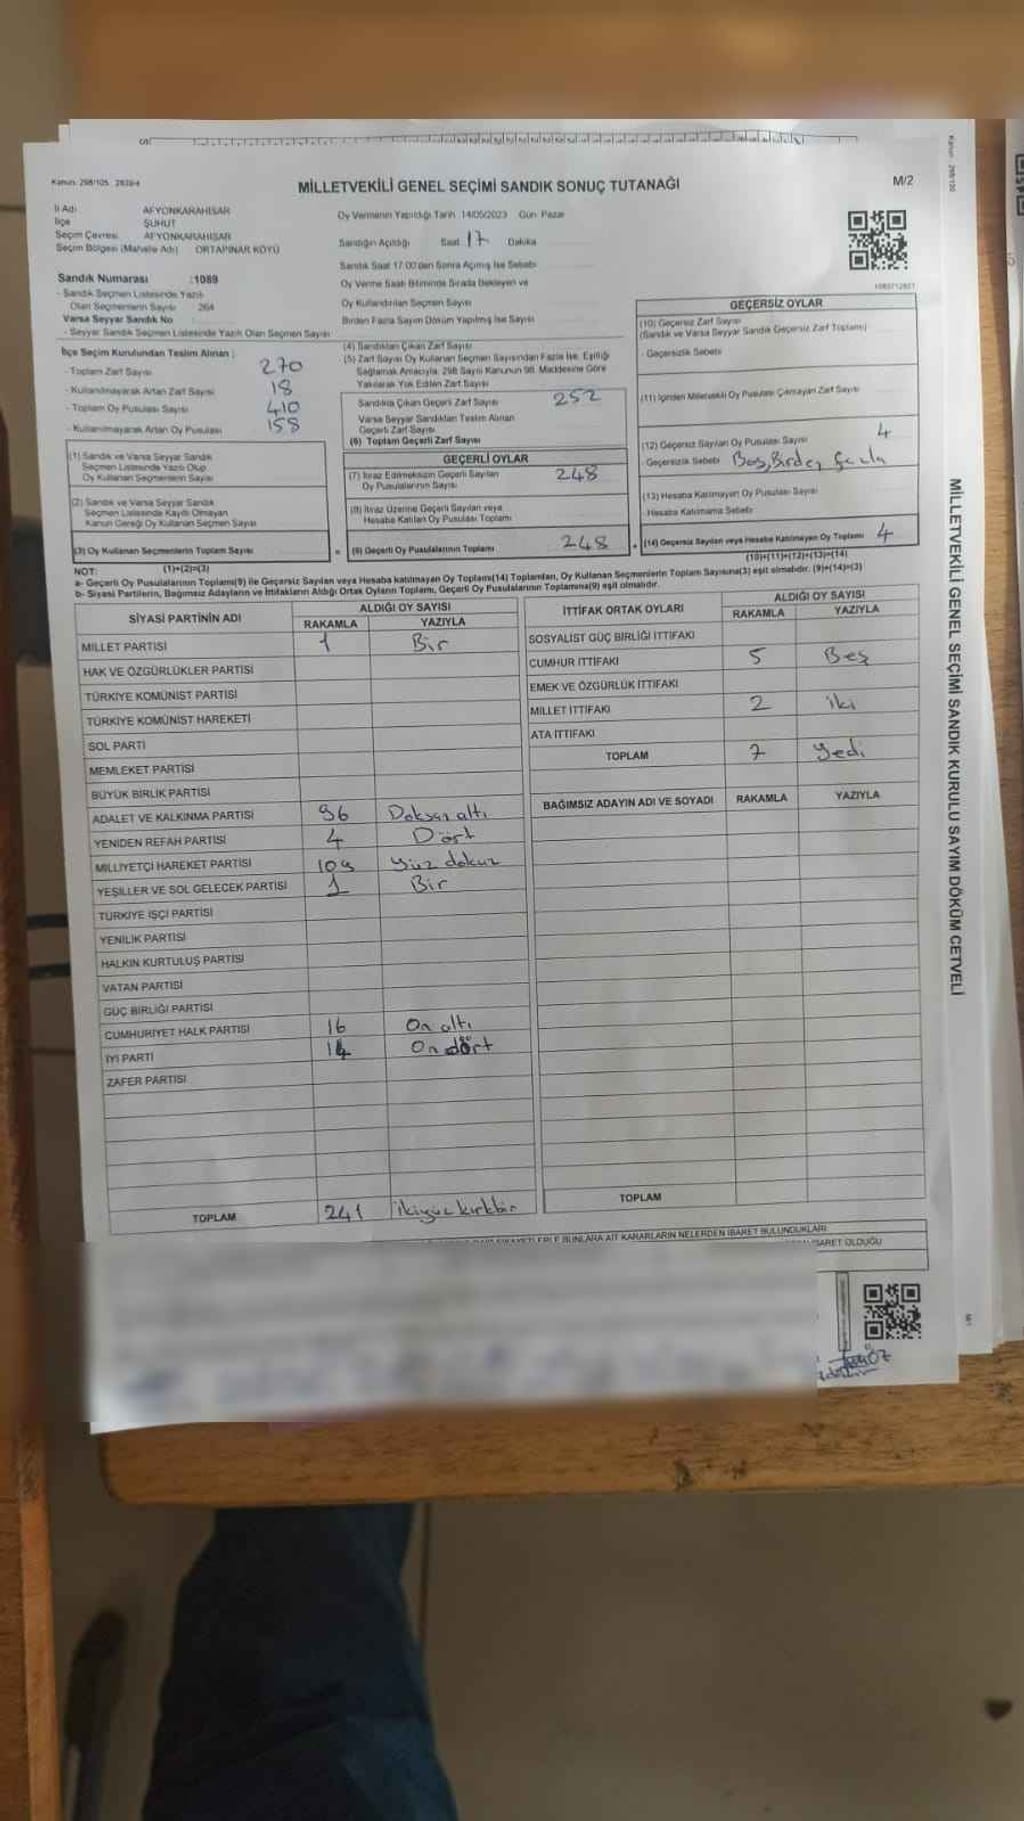 Kanun: 298/105 2839/4
MİLLETVEKİLİ GENEL SEÇİMİ SANDIK SONUÇ TUTANAĞI
M/2
İl Adı AFYONKARAHİSAR
İlçe ŞUHUT
Seçim Çevresi AFYONKARAHİSAR
Seçim Bölgesi (Mahalle Adı) ORTAPINAR KÖYÜ
Oy Vermenin Yapıldığı Tarih :14/05/2023 Gün :Pazar
Sandığın Açıldığı Saat 17 Dakika
Sandık Saat 17:00'den Sonra Açılmış İse Sebebi
Oy Verme Saati Bitiminde Sırada Bekleyen ve
Oy Kullandırılan Seçmen Sayısı
Birden Fazla Sayım Döküm Yapılmış İse Sayısı
Sandık Numarası :1089
- Sandık Seçmen Listesinde Yazılı
Olan Seçmenlerin Sayısı 264
Varsa Seyyar Sandık No
- Seyyar Sandık Seçmen Listesinde Yazılı Olan Seçmen Sayısı
İlçe Seçim Kurulundan Teslim Alınan ;
- Toplam Zarf Sayısı 270
- Kullanılmayarak Artan Zarf Sayısı 18
- Toplam Oy Pusulası Sayısı 410
- Kullanılmayarak Artan Oy Pusulası 158
(1) Sandık ve Varsa Seyyar Sandık
Seçmen Listesinde Yazılı Olup
Oy Kullanan Seçmenlerin Sayısı
(2) Sandık ve Varsa Seyyar Sandık
Seçmen Listesinde Kayıtlı Olmayan
Kanun Gereği Oy Kullanan Seçmen Sayısı
(3) Oy Kullanan Seçmenlerin Toplam Sayısı
(1)+(2)=(3)
(4) Sandıktan Çıkan Zarf Sayısı
(5) Zarf Sayısı Oy Kullanan Seçmen Sayısından Fazla İse, Eşitliği
Sağlamak Amacıyla, 298 Sayılı Kanunun 98. Maddesine Göre
Yakılarak Yok Edilen Zarf Sayısı
Sandıkta Çıkan Geçerli Zarf Sayısı 252
Varsa Seyyar Sandıktan Teslim Alınan
Geçerli Zarf Sayısı
(6) Toplam Geçerli Zarf Sayısı
GEÇERLİ OYLAR
(7) İtiraz Edilmeksizin Geçerli Sayılan
Oy Pusulalarının Sayısı 248
(8) İtiraz Üzerine Geçerli Sayılan veya
Hesaba Katılan Oy Pusulası Toplamı
= (9) Geçerli Oy Pusulalarının Toplamı 248 +
GEÇERSİZ OYLAR
(10) Geçersiz Zarf Sayısı
(Sandık ve Varsa Seyyar Sandık Geçersiz Zarf Toplamı)
- Geçersizlik Sebebi
(11) İçinden Milletvekili Oy Pusulası Çıkmayan Zarf Sayısı
(12) Geçersiz Sayılan Oy Pusulası Sayısı 4
- Geçersizlik Sebebi Boş, Birden fazla
(13) Hesaba Katılmayan Oy Pusulası Sayısı
- Hesaba Katılmama Sebebi
(14) Geçersiz Sayılan veya Hesaba Katılmayan Oy Toplamı 4
(10)+(11)+(12)+(13)=(14)
NOT:
a- Geçerli Oy Pusulalarının Toplamı(9) ile Geçersiz Sayılan veya Hesaba katılmayan Oy Toplamı(14) Toplamları, Oy Kullanan Seçmenlerin Toplam Sayısına(3) eşit olmalıdır. (9)+(14)=(3)
b- Siyasi Partilerin, Bağımsız Adayların ve İttifakların Aldığı Ortak Oyların Toplamı, Geçerli Oy Pusulalarının Toplamına(9) eşit olmalıdır.
SİYASİ PARTİNİN ADI ALDIĞI OY SAYISI
RAKAMLA YAZIYLA
MİLLET PARTİSİ 1 Bir
HAK VE ÖZGÜRLÜKLER PARTİSİ
TÜRKİYE KOMÜNİST PARTİSİ
TÜRKİYE KOMÜNİST HAREKETİ
SOL PARTİ
MEMLEKET PARTİSİ
BÜYÜK BİRLİK PARTİSİ
ADALET VE KALKINMA PARTİSİ 96 Doksan altı
YENİDEN REFAH PARTİSİ 4 Dört
MİLLİYETÇİ HAREKET PARTİSİ 109 Yüz dokuz
YEŞİLLER VE SOL GELECEK PARTİSİ 1 Bir
TÜRKİYE İŞÇİ PARTİSİ
YENİLİK PARTİSİ
HALKIN KURTULUŞ PARTİSİ
VATAN PARTİSİ
GÜÇ BİRLİĞİ PARTİSİ
CUMHURİYET HALK PARTİSİ 16 On altı
İYİ PARTİ 14 On dört
ZAFER PARTİSİ
TOPLAM 241 ikiyüz kırkbir
İTTİFAK ORTAK OYLARI ALDIĞI OY SAYISI
RAKAMLA YAZIYLA
SOSYALİST GÜÇ BİRLİĞİ İTTİFAKI
CUMHUR İTTİFAKI 5 Beş
EMEK VE ÖZGÜRLÜK İTTİFAKI
MİLLET İTTİFAKI 2 iki
ATA İTTİFAKI
TOPLAM 7 Yedi
BAĞIMSIZ ADAYIN ADI VE SOYADI RAKAMLA YAZIYLA
TOPLAM
BUNLARA AİT KARARLARIN NELERDEN İBARET BULUNDUKLARI
OLDUĞU
MİLLETVEKİLİ GENEL SEÇİMİ SANDIK KURULU SAYIM DÖKÜM CETVELİ